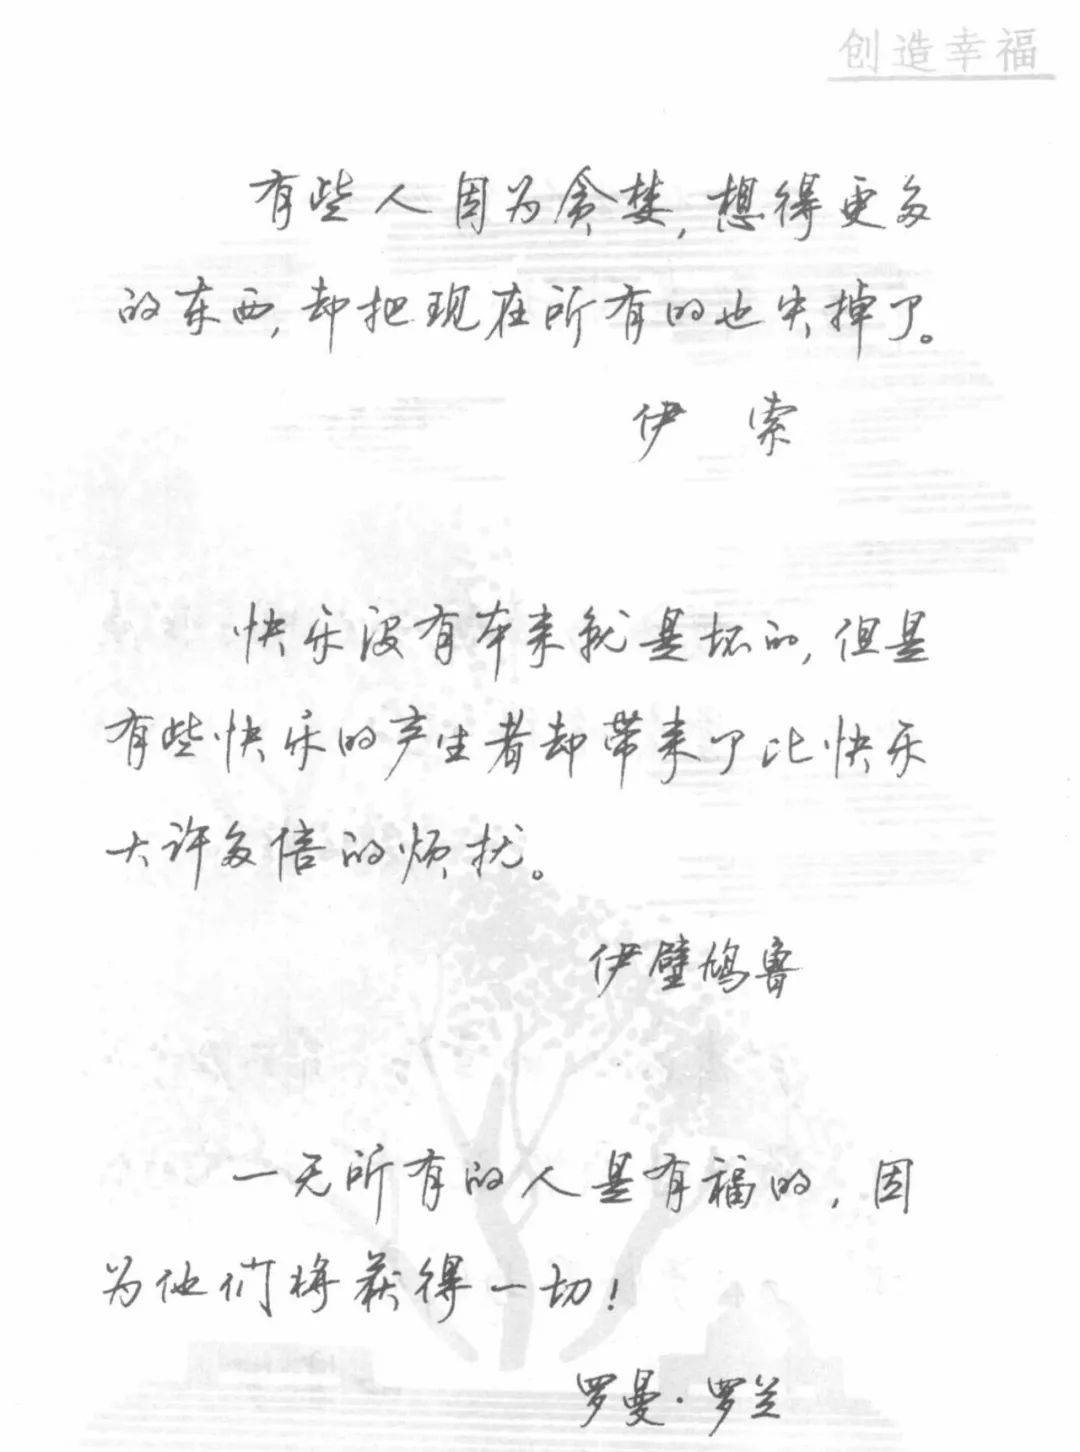 创造幸福
有些人因为贪婪,想得更多
的东西,却把现在所有的也失掉了。
伊 索
快乐没有本来就是坏的,但是
有些快乐的产生者却带来了比快乐
大许多倍的烦扰。
伊壁鸠鲁
一无所有的人是有福的,因
为他们将获得一切!
罗曼·罗兰